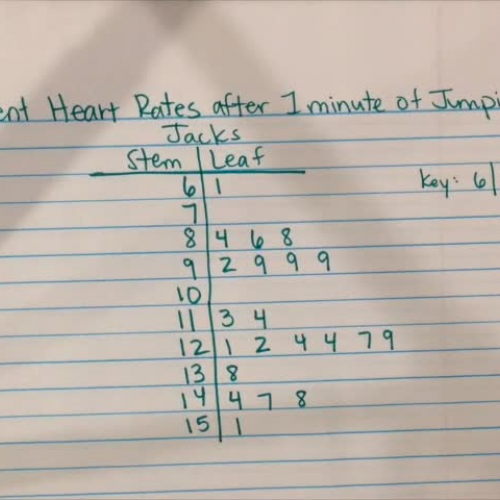 Heart Rates after 1 minute of
Jacks
Stem | Leaf
6 | 1
Key: 6|
7 |
8 | 4 6 8
9 | 2 9 9 9
10 |
11 | 3 4
12 | 1 2 4 4 7 9
13 | 8
14 | 4 7 8
15 | 1